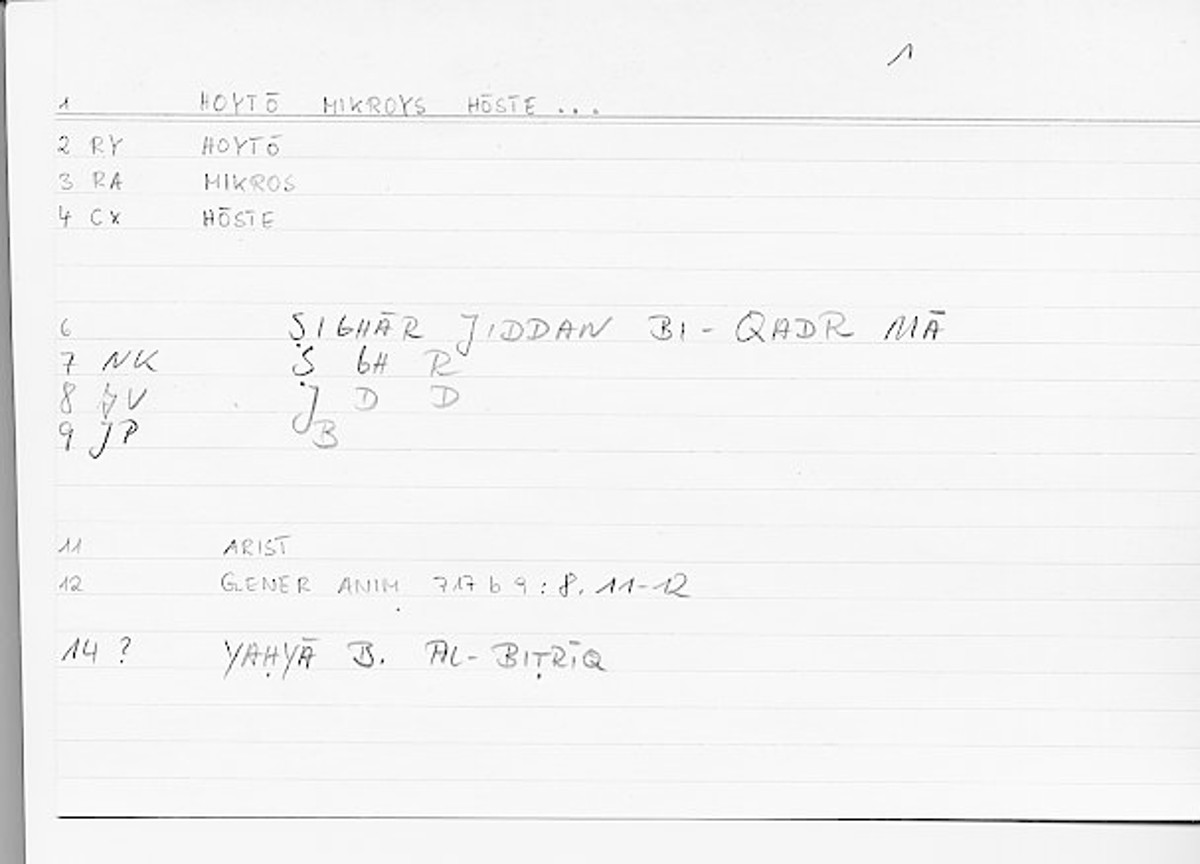 1
1 HOYTŌ MIKROYS HŌSTE ...
2 RY HOYTŌ
3 RA MIKROS
4 CX HŌSTE
6 ṢIGHĀR JIDDAN BI- QADR MĀ
7 NK Ṣ GH R
8 V J D D
9 JP B
11 ARIST
12 GENER ANIM 717 b 9 : 8. 11-12
14 ? YAḤYĀ B. AL- BIṬRĪQ